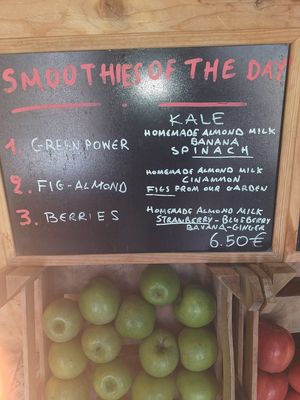 SMOOTHIES OF THE DAY
1. GREEN POWER
KALE
HOMEMADE ALMOND MILK
BANANA
SPINACH
2. FIG-ALMOND
HOMEMADE ALMOND MILK
CINAMMON
FIGS FROM OUR GARDEN
3. BERRIES
HOMEMADE ALMOND MILK
STRAWBERRY - BLUEBERRY
BANANA-GINGER
6.50€